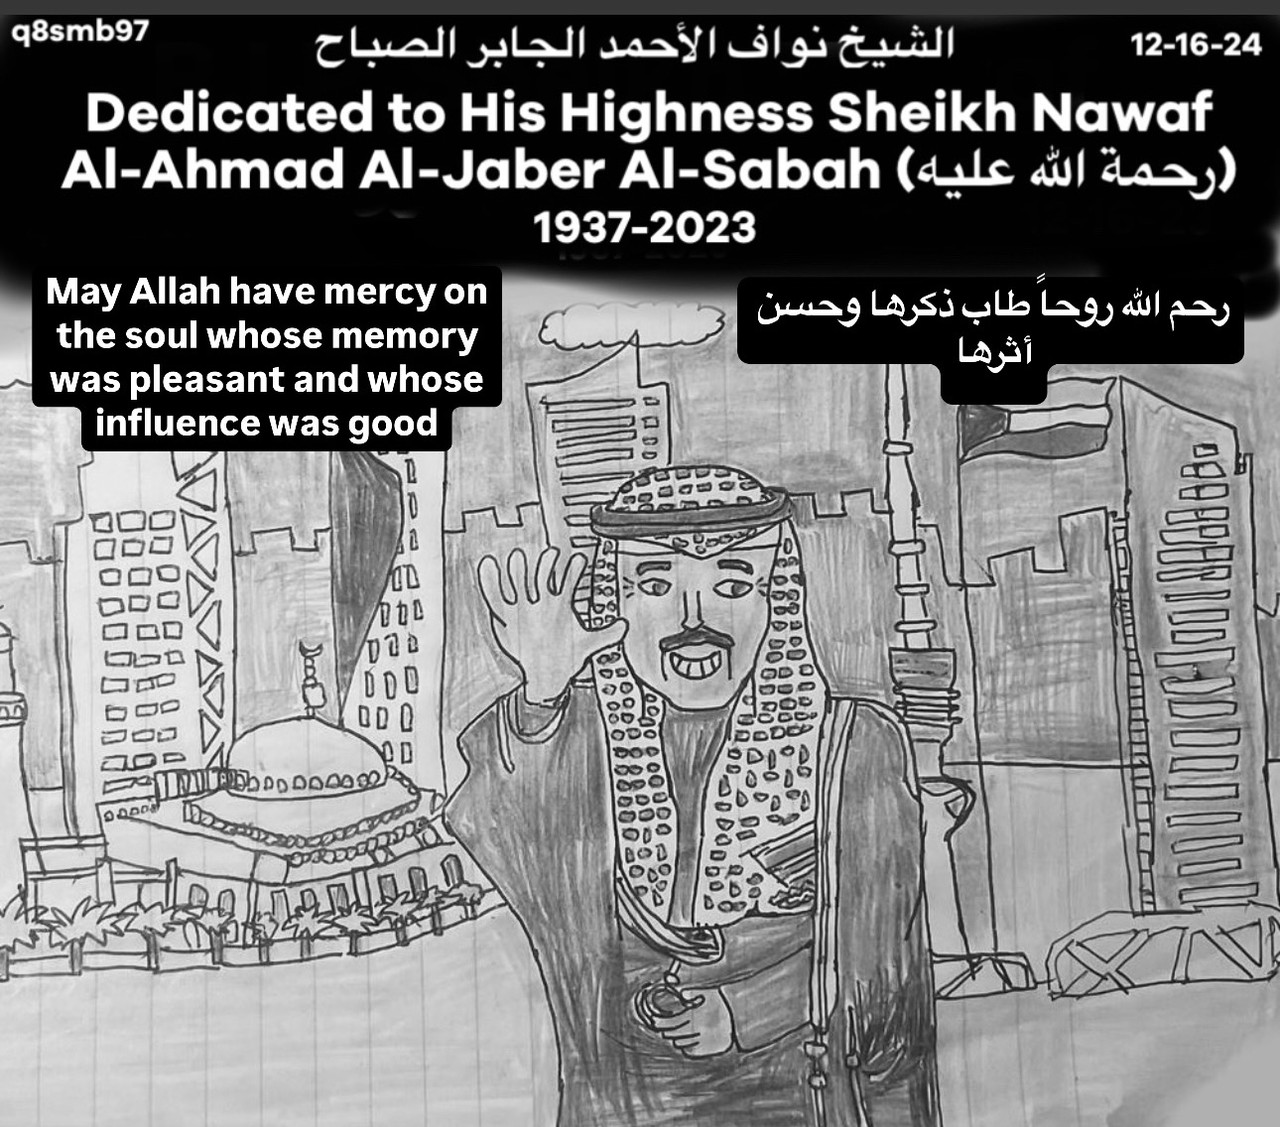 q8smb97
الشيخ نواف الأحمد الجابر الصباح
12-16-24
Dedicated to His Highness Sheikh Nawaf
Al-Ahmad Al-Jaber Al-Sabah (رحمة الله عليه)
1937-2023
May Allah have mercy on
the soul whose memory
was pleasant and whose
influence was good
رحم الله روحاً طاب ذكرها وحسن
أثرها